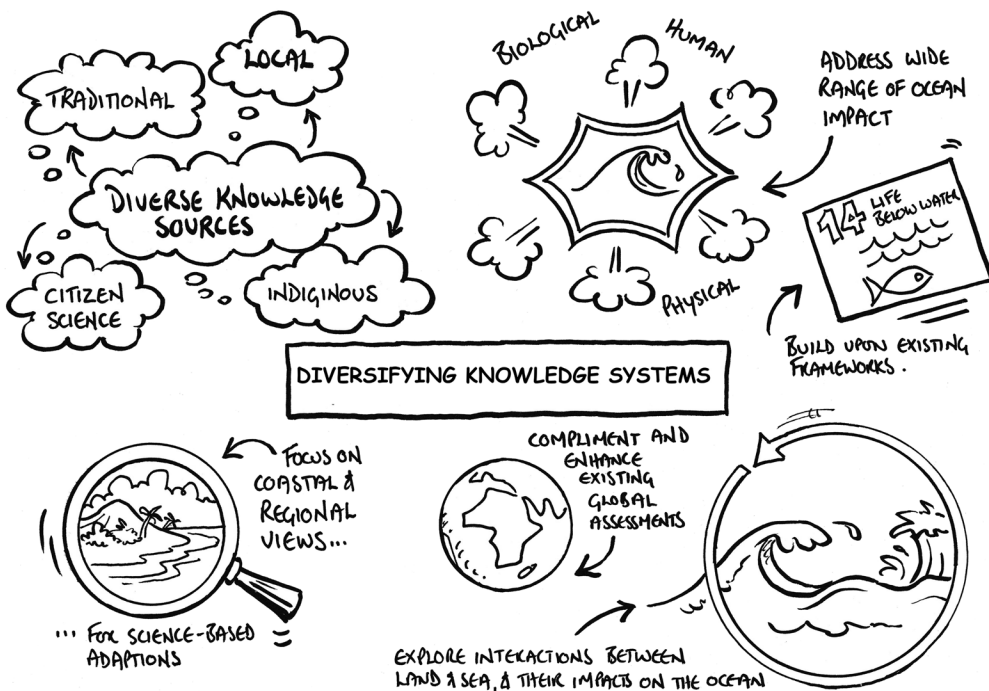 TRADITIONAL
LOCAL
DIVERSE KNOWLEDGE
SOURCES
CITIZEN
SCIENCE
INDIGINOUS
BIOLOGICAL
HUMAN
PHYSICAL
ADDRESS WIDE
RANGE OF OCEAN
IMPACT
14 LIFE
BELOW WATER
BUILD UPON EXISTING
FRAMEWORKS.
DIVERSIFYING KNOWLEDGE SYSTEMS
FOCUS ON
COASTAL &
REGIONAL
VIEWS...
... FOR SCIENCE-BASED
ADAPTIONS
COMPLIMENT AND
ENHANCE
EXISTING
GLOBAL
ASSESSMENTS
EXPLORE INTERACTIONS BETWEEN
LAND & SEA, & THEIR IMPACTS ON THE OCEAN